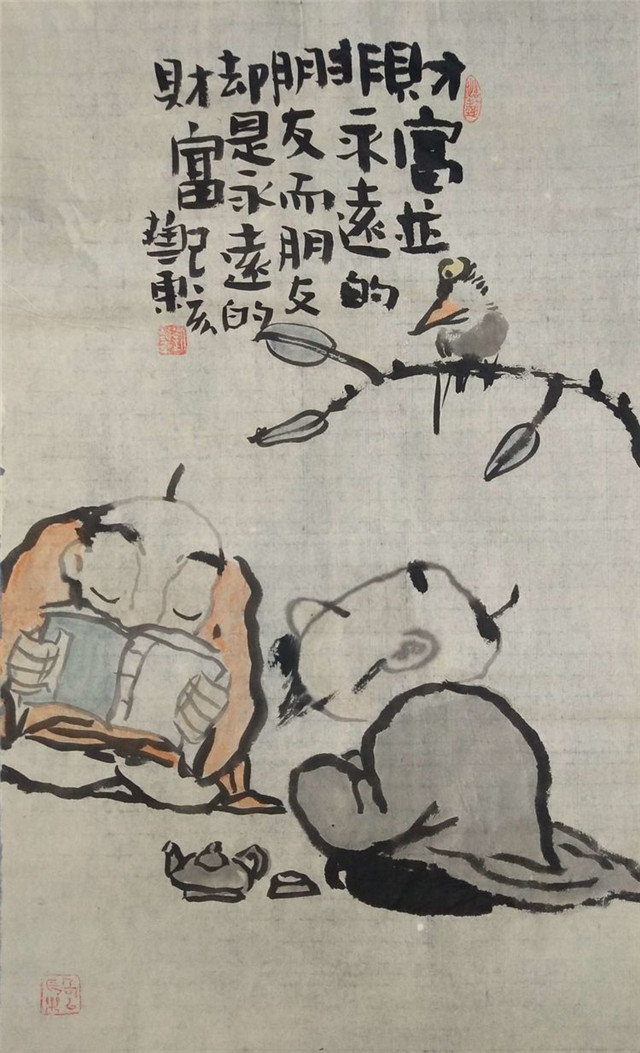 財富並
非永遠的
朋友而朋友
却是永遠的
財富
己亥